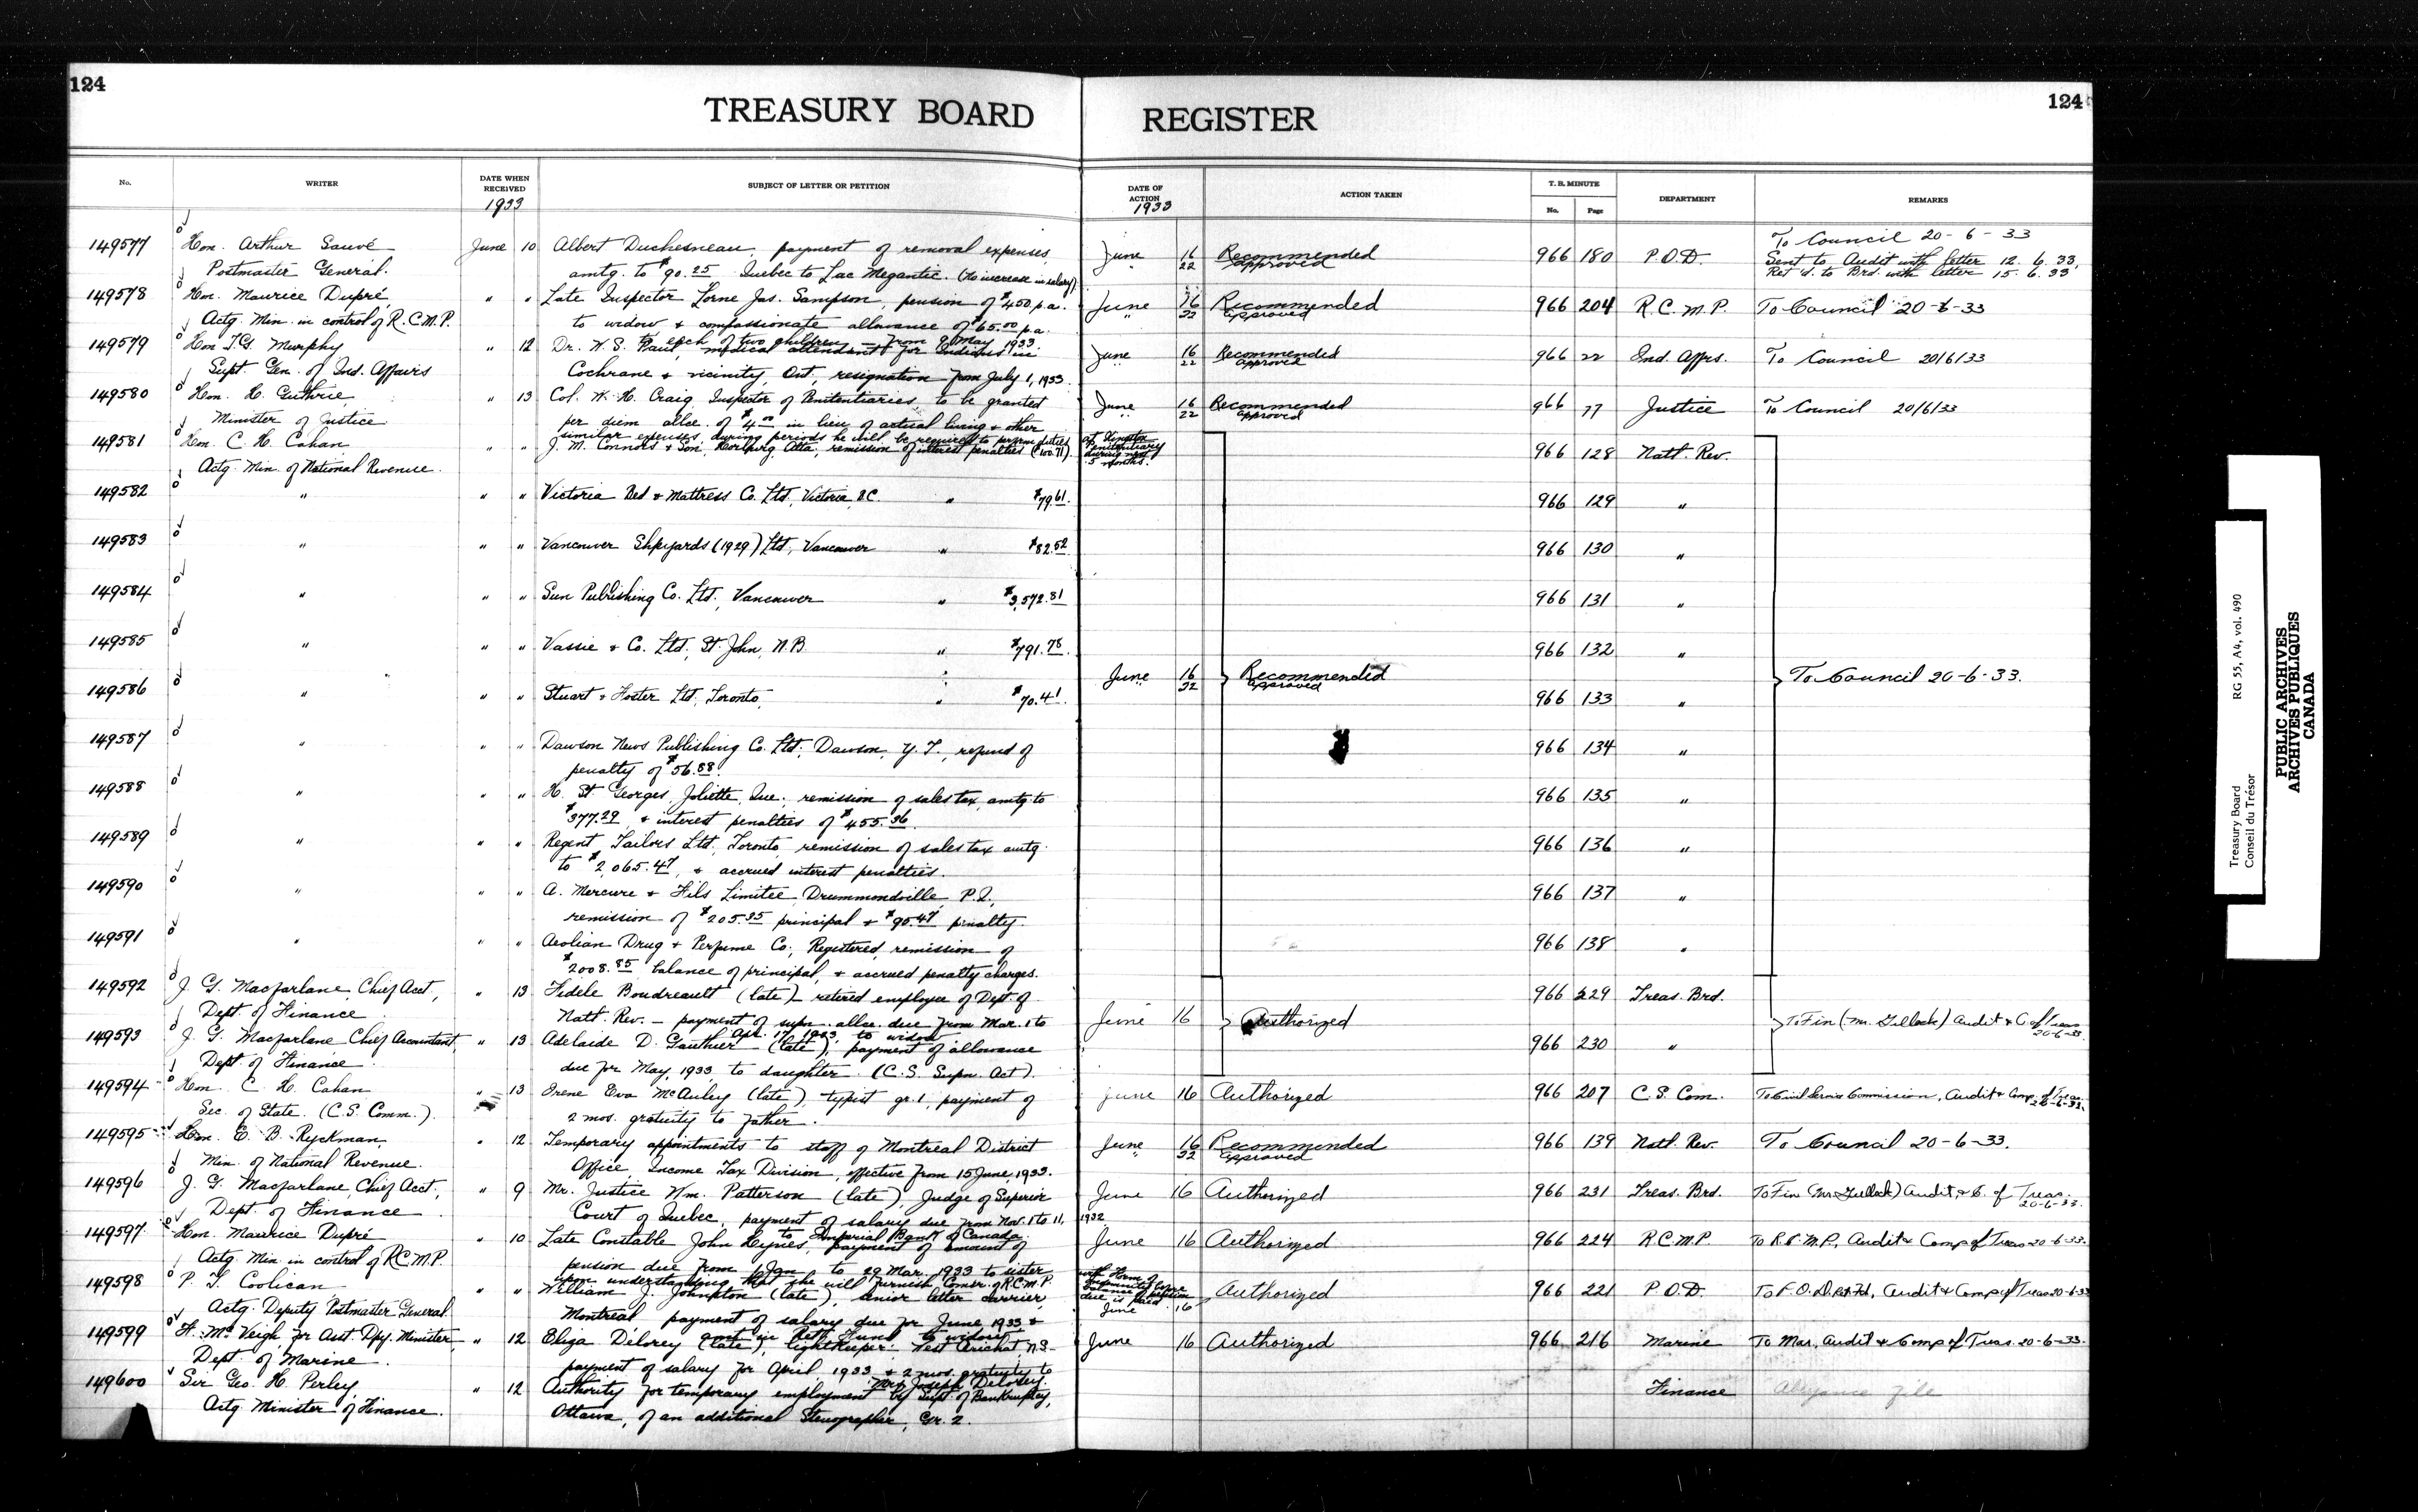 124
124
TREASURY BOARD REGISTER
No.
WRITER
DATE WHEN RECEIVED
1933
SUBJECT OF LETTER OR PETITION
DATE OF ACTION
1933
ACTION TAKEN
T. B. MINUTE
No. Page
DEPARTMENT
REMARKS
149577 Hon. Arthur Sauvé June 10 Albert Duchesneau, payment of removal expenses June 16 Recommended 966 180 P.O.D. To Council 20-6-33
Postmaster General. amtg. to $90.25 Quebec to Lac Megantic. (No increase in salary) " 22 approved Sent to Audit with letter 12.6.33,
Ret'd. to Brd. with letter 15.6.33
149578 Hon. Maurice Dupré, " " Late Inspector Lorne Jas. Sampson, pension of $450 p.a. June 16 Recommended 966 204 R.C.M.P. To Council 20-6-33
Actg. Min. in control of R.C.M.P. to widow & compassionate allowance of $65.00 p.a. " 22 approved
to each of two children – from 9 May 1933.
149579 Hon. T.G. Murphy " 12 Dr. W.S. Paul, medical attendant for Indians in June 16 Recommended 966 22 Ind. Affrs. To Council 20/6/33
Supt. Gen. of Ind. Affairs Cochrane & vicinity, Ont., resignation from July 1, 1933. " 22 approved
149580 Hon. H. Guthrie, " 13 Col. W.H. Craig Inspector of Penitentiaries to be granted June 16 Recommended 966 77 Justice To Council 20/6/33
Minister of Justice per diem allce. of $4.00 in lieu of actual living & other " 22 approved
similar expenses, during periods he will be required to perform duties at Kingston Penitentiary during next 5 months.
149581 Hon. C.H. Cahan " " J.M. Connors & Son, Alta, remission of interest penalties ($100.71). 966 128 Natl. Rev.
Actg. Min. of National Revenue.
149582 " " " Victoria Bed & Mattress Co. Ltd., Victoria, B.C. " $79.61. 966 129 "
149583 " " " Vancouver Shipyards (1929) Ltd., Vancouver " $82.52 966 130 "
149584 " " " Sun Publishing Co. Ltd., Vancouver " $3,572.81 966 131 "
149585 " " " Vassie & Co. Ltd., St. John, N.B. " $791.78. 966 132 "
June 16 Recommended To Council 20-6-33.
" 22 approved
149586 " " " Stuart & Foster Ltd., Toronto, " $70.41. 966 133 "
149587 " " " Dawson News Publishing Co. Ltd., Dawson, Y.T., refund of 966 134 "
penalty of $56.88.
149588 " " " H. St. Georges, Joliette, Que., remission of sales tax, amtg. to 966 135 "
$377.29, & interest penalties of $455.36.
149589 " " " Regent Tailors Ltd., Toronto, remission of sales tax amtg. 966 136 "
to $2,065.47, & accrued interest penalties.
149590 " " " A. Mercure & Fils Limitee, Drummondville, P.Q., 966 137 "
remission of $205.35 principal & $90.47 penalty.
149591 " " " Aeolian Drug & Perfume Co., Registered, remission of 966 138 "
$2008.85 balance of principal, & accrued penalty charges.
149592 J.G. Macfarlane, Chief Acct., " 13 Fidele Boudreault (late) retired employee of Dept. of 966 229 Treas. Brd.
Dept. of Finance Natl. Rev. – payment of supn. allce. due from Mar. 1 to June 16 Authorized To Fin (Mr. Gullock) Audit & C. of Treas 20-6-33.
Apr. 17, 1933, to widow
149593 J.G. Macfarlane, Chief Accountant, " 13 Adelaide D. Gauthier (late), payment of allowance 966 230 "
Dept. of Finance due for May, 1933, to daughter. (C.S. Supn. Act).
149594 Hon. C.H. Cahan " 13 Irene Eva McAuley (late), typist gr. 1, payment of June 16 Authorized 966 207 C.S. Com. To Civil Service Commission, Audit & Comp. of Treas. 20-6-33.
Sec. of State. (C.S. Comm.). 2 mos. gratuity to father.
149595 Hon. E.B. Ryckman " 12 Temporary appointments to staff of Montreal District June 16 Recommended 966 139 Natl. Rev. To Council 20-6-33.
Min. of National Revenue. Office, Income Tax Division, effective from 15 June, 1933. " 22 approved
149596 J.G. Macfarlane, Chief Acct., " 9 Mr. Justice Wm. Patterson (late), Judge of Superior June 16 Authorized 966 231 Treas. Brd. To Fin (Mr. Gullock) Audit & C. of Treas. 20-6-33.
Dept. of Finance Court of Quebec, payment of salary due from Nov. 1 to 11, 1932
to Imperial Bank of Canada.
149597 Hon. Maurice Dupré " 10 Late Constable John Hynes, payment of amount of June 16 Authorized 966 224 R.C.M.P. To R.C.M.P., Audit & Comp of Treas 20-6-33.
Actg. Min. in control of R.C.M.P. pension due from 1 Jan to 29 Mar. 1933 to sister
upon understanding that she will furnish Comsr. of R.C.M.P. with Form of Indemnity before balance of pension due is paid.
149598 P.T. Coolican, " " William J. Johnston (late), senior letter carrier, June 16 Authorized 966 221 P.O.D. To P.O.D., Audit & Comp of Treas 20-6-33
Actg. Deputy Postmaster General. Montreal, payment of salary due for June, 1933 &
amt. in Ret. Fund to widow
149599 H. McVeigh, for Asst. Dpy. Minister, " 12 Eliza Delorey (late), lightkeeper West Arichat, N.S. June 16 Authorized 966 216 Marine To Mar., Audit & Comp of Treas. 20-6-33.
Dept. of Marine. payment of salary for April 1933 & 2 mos. gratuity to
Mrs. Joseph Delorey.
149600 Sir Geo. H. Perley, " 12 Authority for temporary employment by Supt. of Bankruptcy, Finance Abeyance file
Actg. Minister of Finance. Ottawa, of an additional Stenographer, Gr. 2.
Treasury Board RG 55, A4, vol. 490
Conseil du Trésor
PUBLIC ARCHIVES
ARCHIVES PUBLIQUES
CANADA